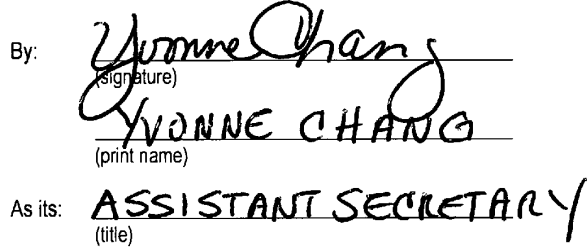 By: Yvonne Chang
(signature)
YVONNE CHANG
(print name)
As its: ASSISTANT SECRETARY
(title)